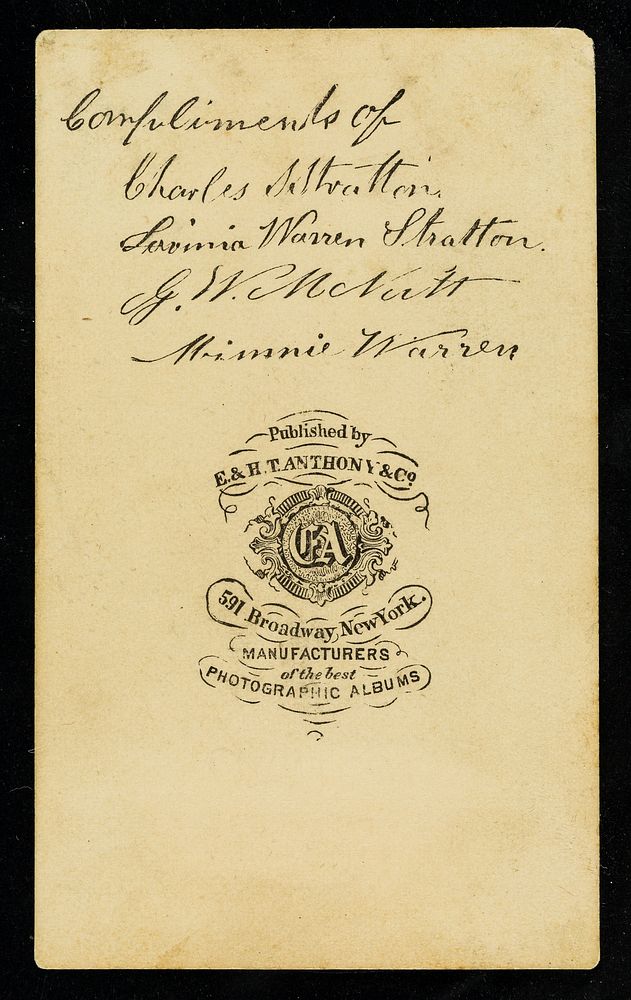 Compliments of
Charles S. Stratton.
Lavinia Warren Stratton.
G. W. M Nutt
Minnie Warren
Published by
E. & H. T. ANTHONY & Co
EA
591 Broadway, New York.
MANUFACTURERS
of the best
PHOTOGRAPHIC ALBUMS